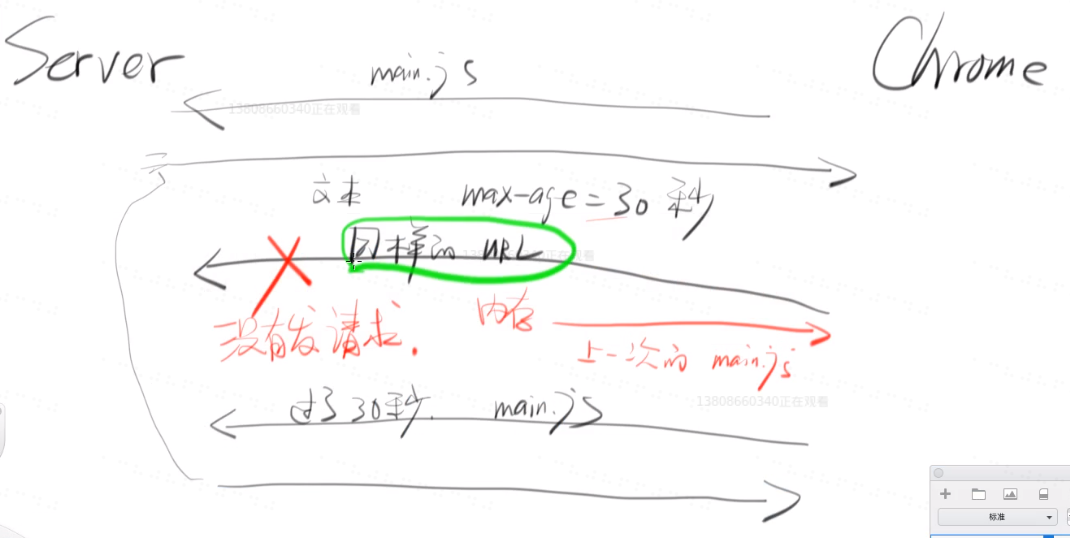 Server
Chrome
main.js
13808660340正在观看
文本 max-age = 30 秒
同样的 URL
没有发请求.
内存
上一次的 main.js
13808660340正在观看
过了 30秒. main.js
标准